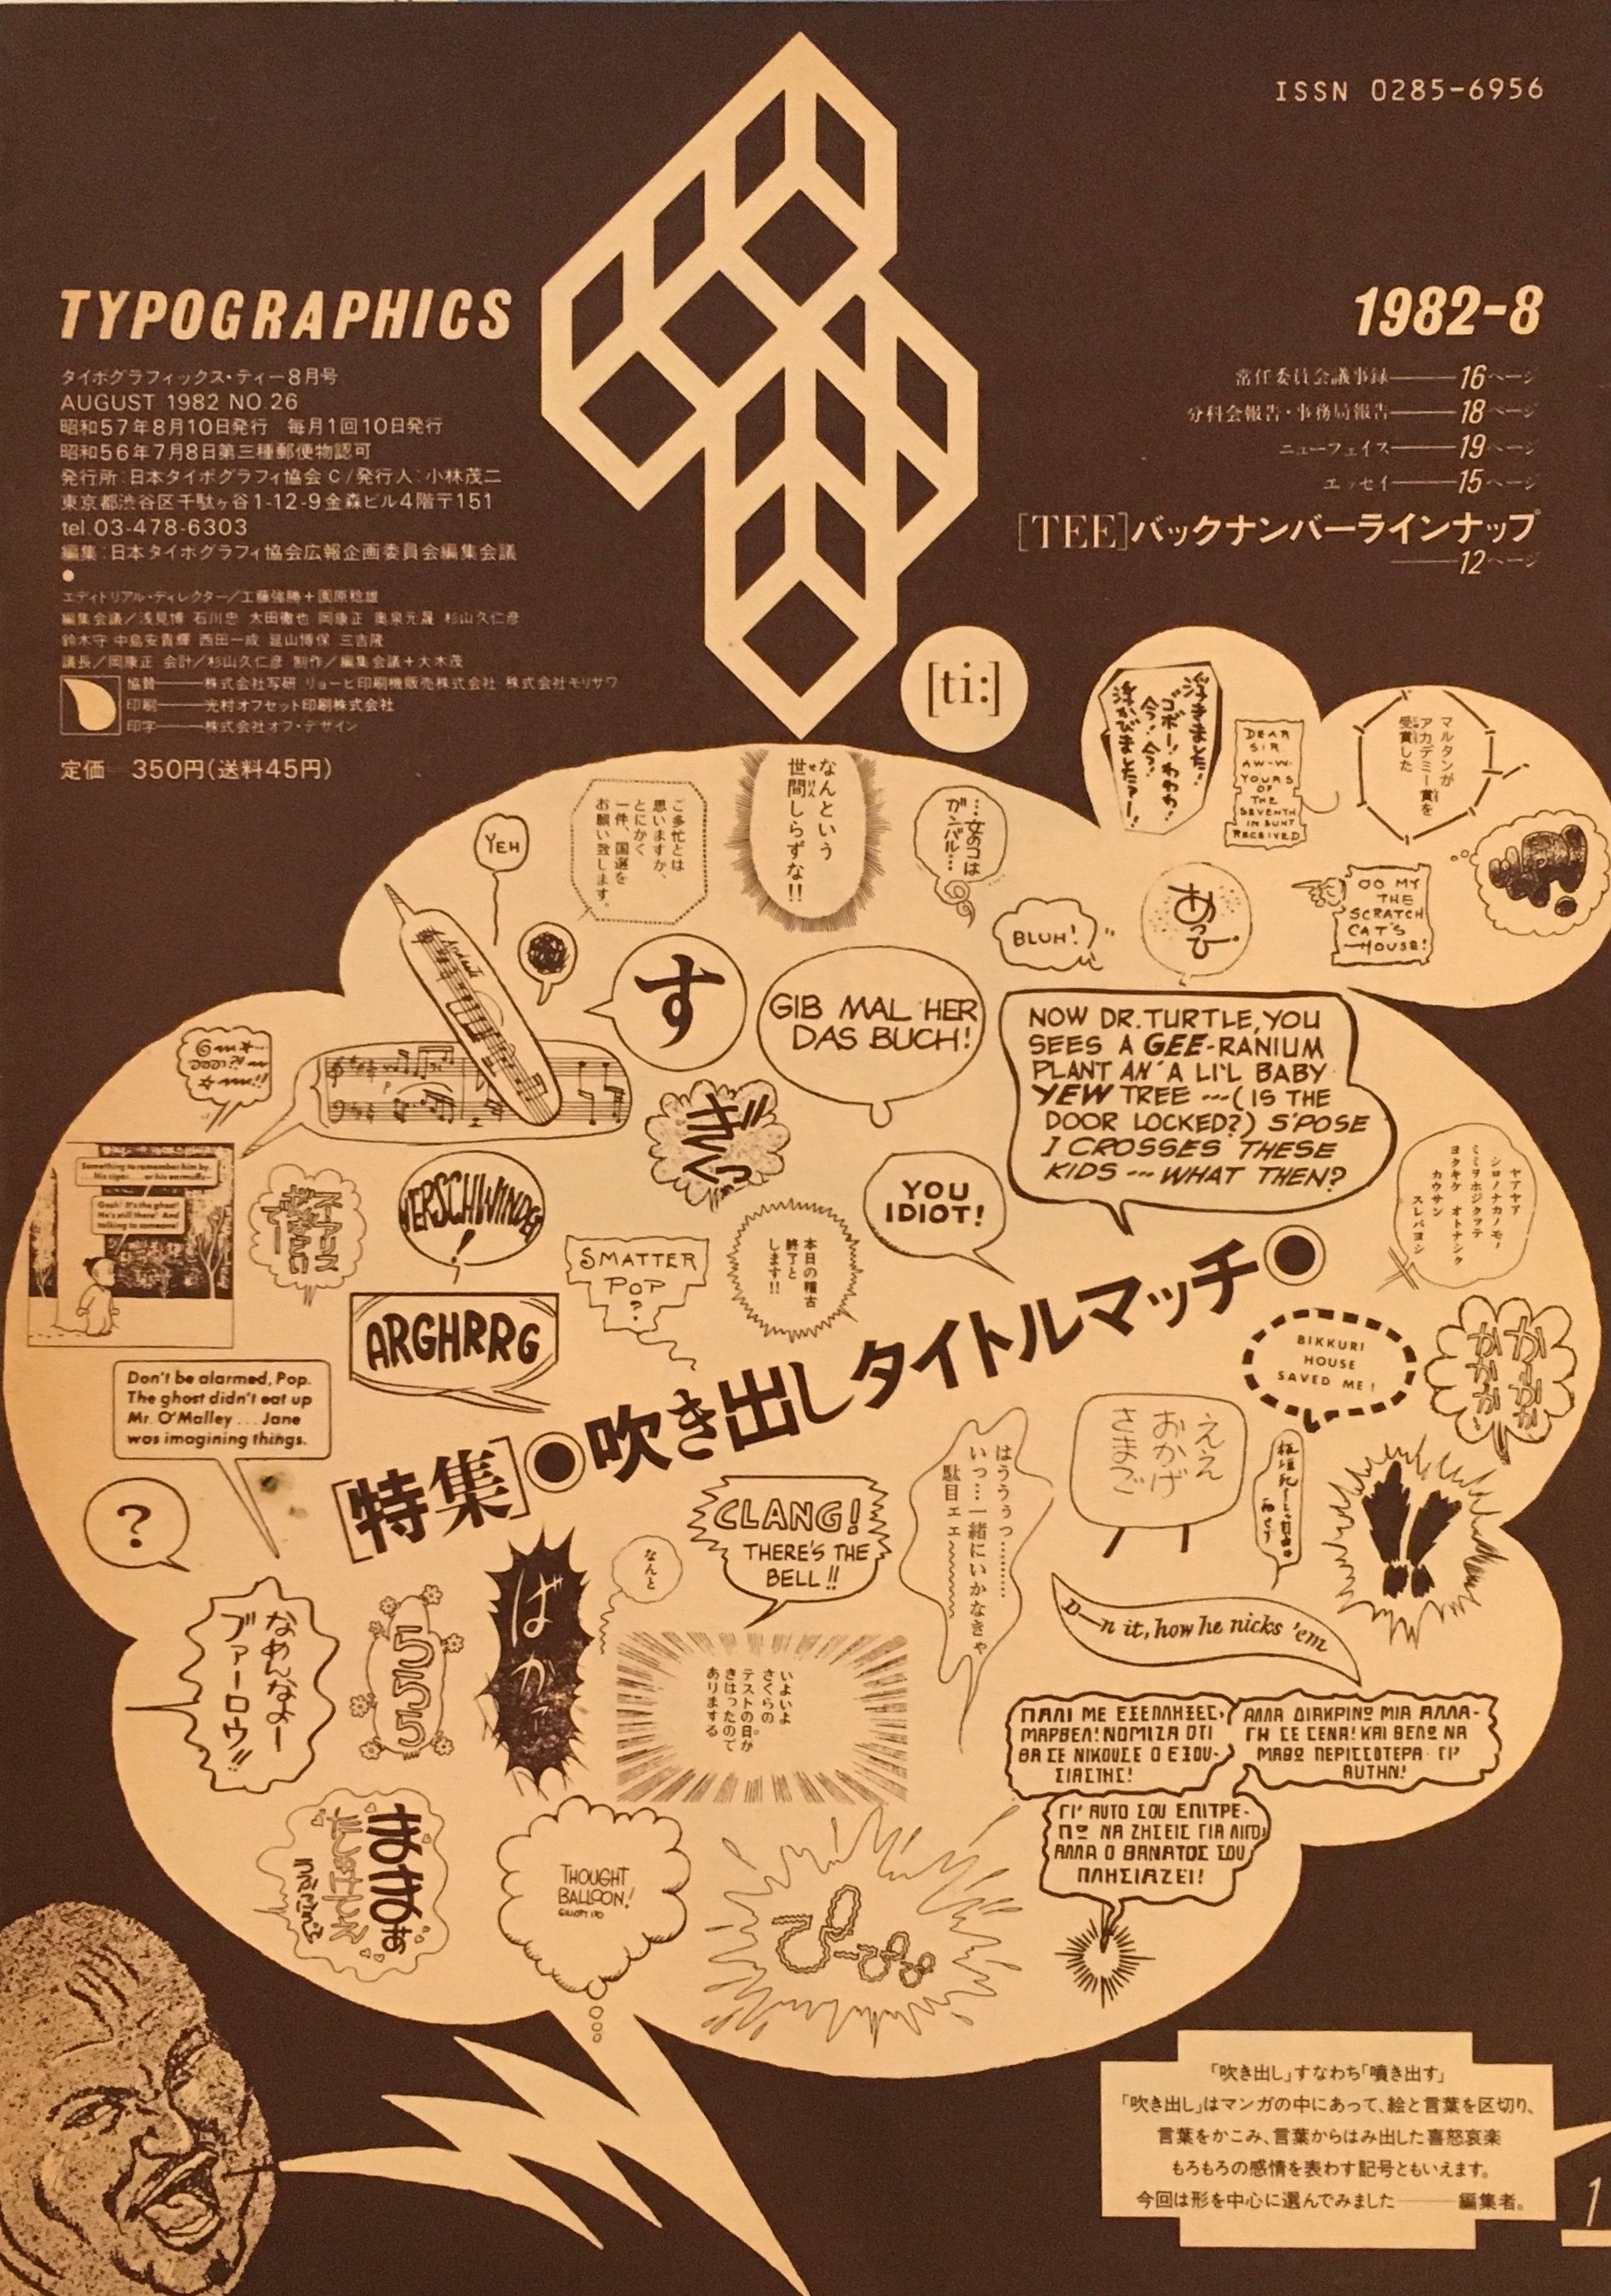 ISSN 0285-6956
TYPOGRAPHICS
タイポグラフィックス・ティー8月号
AUGUST 1982 NO.26
昭和57年8月10日発行　毎月1回10日発行
昭和56年7月8日第三種郵便物認可
発行所:日本タイポグラフィ協会 C/発行人:小林茂二
東京都渋谷区千駄ヶ谷1-12-9金森ビル4階〒151
tel.03-478-6303
編集:日本タイポグラフィ協会広報企画委員会編集会議
●
エディトリアル・ディレクター/工藤強勝+園原稔雄
編集会議/浅見博 石川忠 太田徹也 岡康正 奥泉元晟 杉山久仁彦
鈴木守 中島安貴輝 西田一成 延山博保 三吉隆
議長/岡康正 会計/杉山久仁彦 制作/編集会議+大木茂
協賛——株式会社写研 リョービ印刷機販売株式会社 株式会社モリサワ
印刷——光村オフセット印刷株式会社
印字——株式会社オフ・デザイン
定価　350円(送料45円)
1982-8
常任委員会議事録——16ページ
分科会報告・事務局報告——18ページ
ニューフェイス——19ページ
エッセイ——15ページ
[TEE]バックナンバーラインナップ
——12ページ
[ti:]
浮きました!
ゴボー!わわわ
今!今!
浮かびましたァー!
DEAR
SIR
AW-W-
YOURS
OF
THE
SEVENTH
INSUNT
RECEIVED
マルタンが
アカデミー賞を
受賞した
YEH
ご多忙とは
思いますが、
とにかく
一件、国選を
お願い致します。
なんという
世間しらずな!!
…女のコは
ガンバル…
BLUH!
あっひ
OO MY
THE
SCRATCH
CAT'S
HOUSE!
Andante
す
GIB MAL HER
DAS BUCH!
NOW DR. TURTLE, YOU
SEES A GEE-RANIUM
PLANT AN' A LI'L BABY
YEW TREE ---(IS THE
DOOR LOCKED?) S'POSE
I CROSSES THESE
KIDS --- WHAT THEN?
ぎくっ
Something to remember him by.
His cigar . . . or his earmuffs—
Gosh! It's the ghost!
He's still there! And
talking to someone!
VERSCHWINDE!
SMATTER
POP
?
本日の稽古
終了と
します!!
YOU
IDIOT!
ヤアヤア
シロノナカノモノ
ミミヲホジクツテ
ヨクキケ オトナシク
カウサン
スレバヨシ
ARGHRRG
Don't be alarmed, Pop.
The ghost didn't eat up
Mr. O'Malley . . . Jane
was imagining things.
[特集]●吹き出しタイトルマッチ●
BIKKURI
HOUSE
SAVED ME!
かーかか
かかかか
?
ええ
おかげ
さまで
はうううっ………
いっ…一緒にいかなきゃ
駄目ェェ〜〜〜
CLANG!
THERE'S THE
BELL!!
なんと
ばかっ
D—n it, how he nicks 'em
なめんなよー
ブァーロウ!!
5555
いよいよ
さくらの
テストの日が
きはったので
ありまする
ΠΑΛΙ ΜΕ ΕΞΕΠΛΗΞΕΣ,
ΜΑΡΒΕΛ! ΝΟΜΙΖΑ ΟΤΙ
ΘΑ ΣΕ ΝΙΚΟΥΣΕ Ο ΕΞΟΥ-
ΣΙΑΣΤΗΣ!
ΑΛΛΑ ΔΙΑΚΡΙΝΩ ΜΙΑ ΑΛΛΑ-
ΓΗ ΣΕ ΣΕΝΑ! ΚΑΙ ΘΕΛΩ ΝΑ
ΜΑΘΩ ΠΕΡΙΣΣΟΤΕΡΑ ΓΙ'
ΑΥΤΗΝ!
ΓΙ' ΑΥΤΟ ΣΟΥ ΕΠΙΤΡΕ-
ΠΩ ΝΑ ΖΗΣΕΙΣ ΓΙΑ ΛΙΓΟ,
ΑΛΛΑ Ο ΘΑΝΑΤΟΣ ΣΟΥ
ΠΛΗΣΙΑΖΕΙ!
THOUGHT
BALLOON!
「吹き出し」すなわち「噴き出す」
「吹き出し」はマンガの中にあって、絵と言葉を区切り、
言葉をかこみ、言葉からはみ出した喜怒哀楽
もろもろの感情を表わす記号ともいえます。
今回は形を中心に選んでみました——編集者。
1